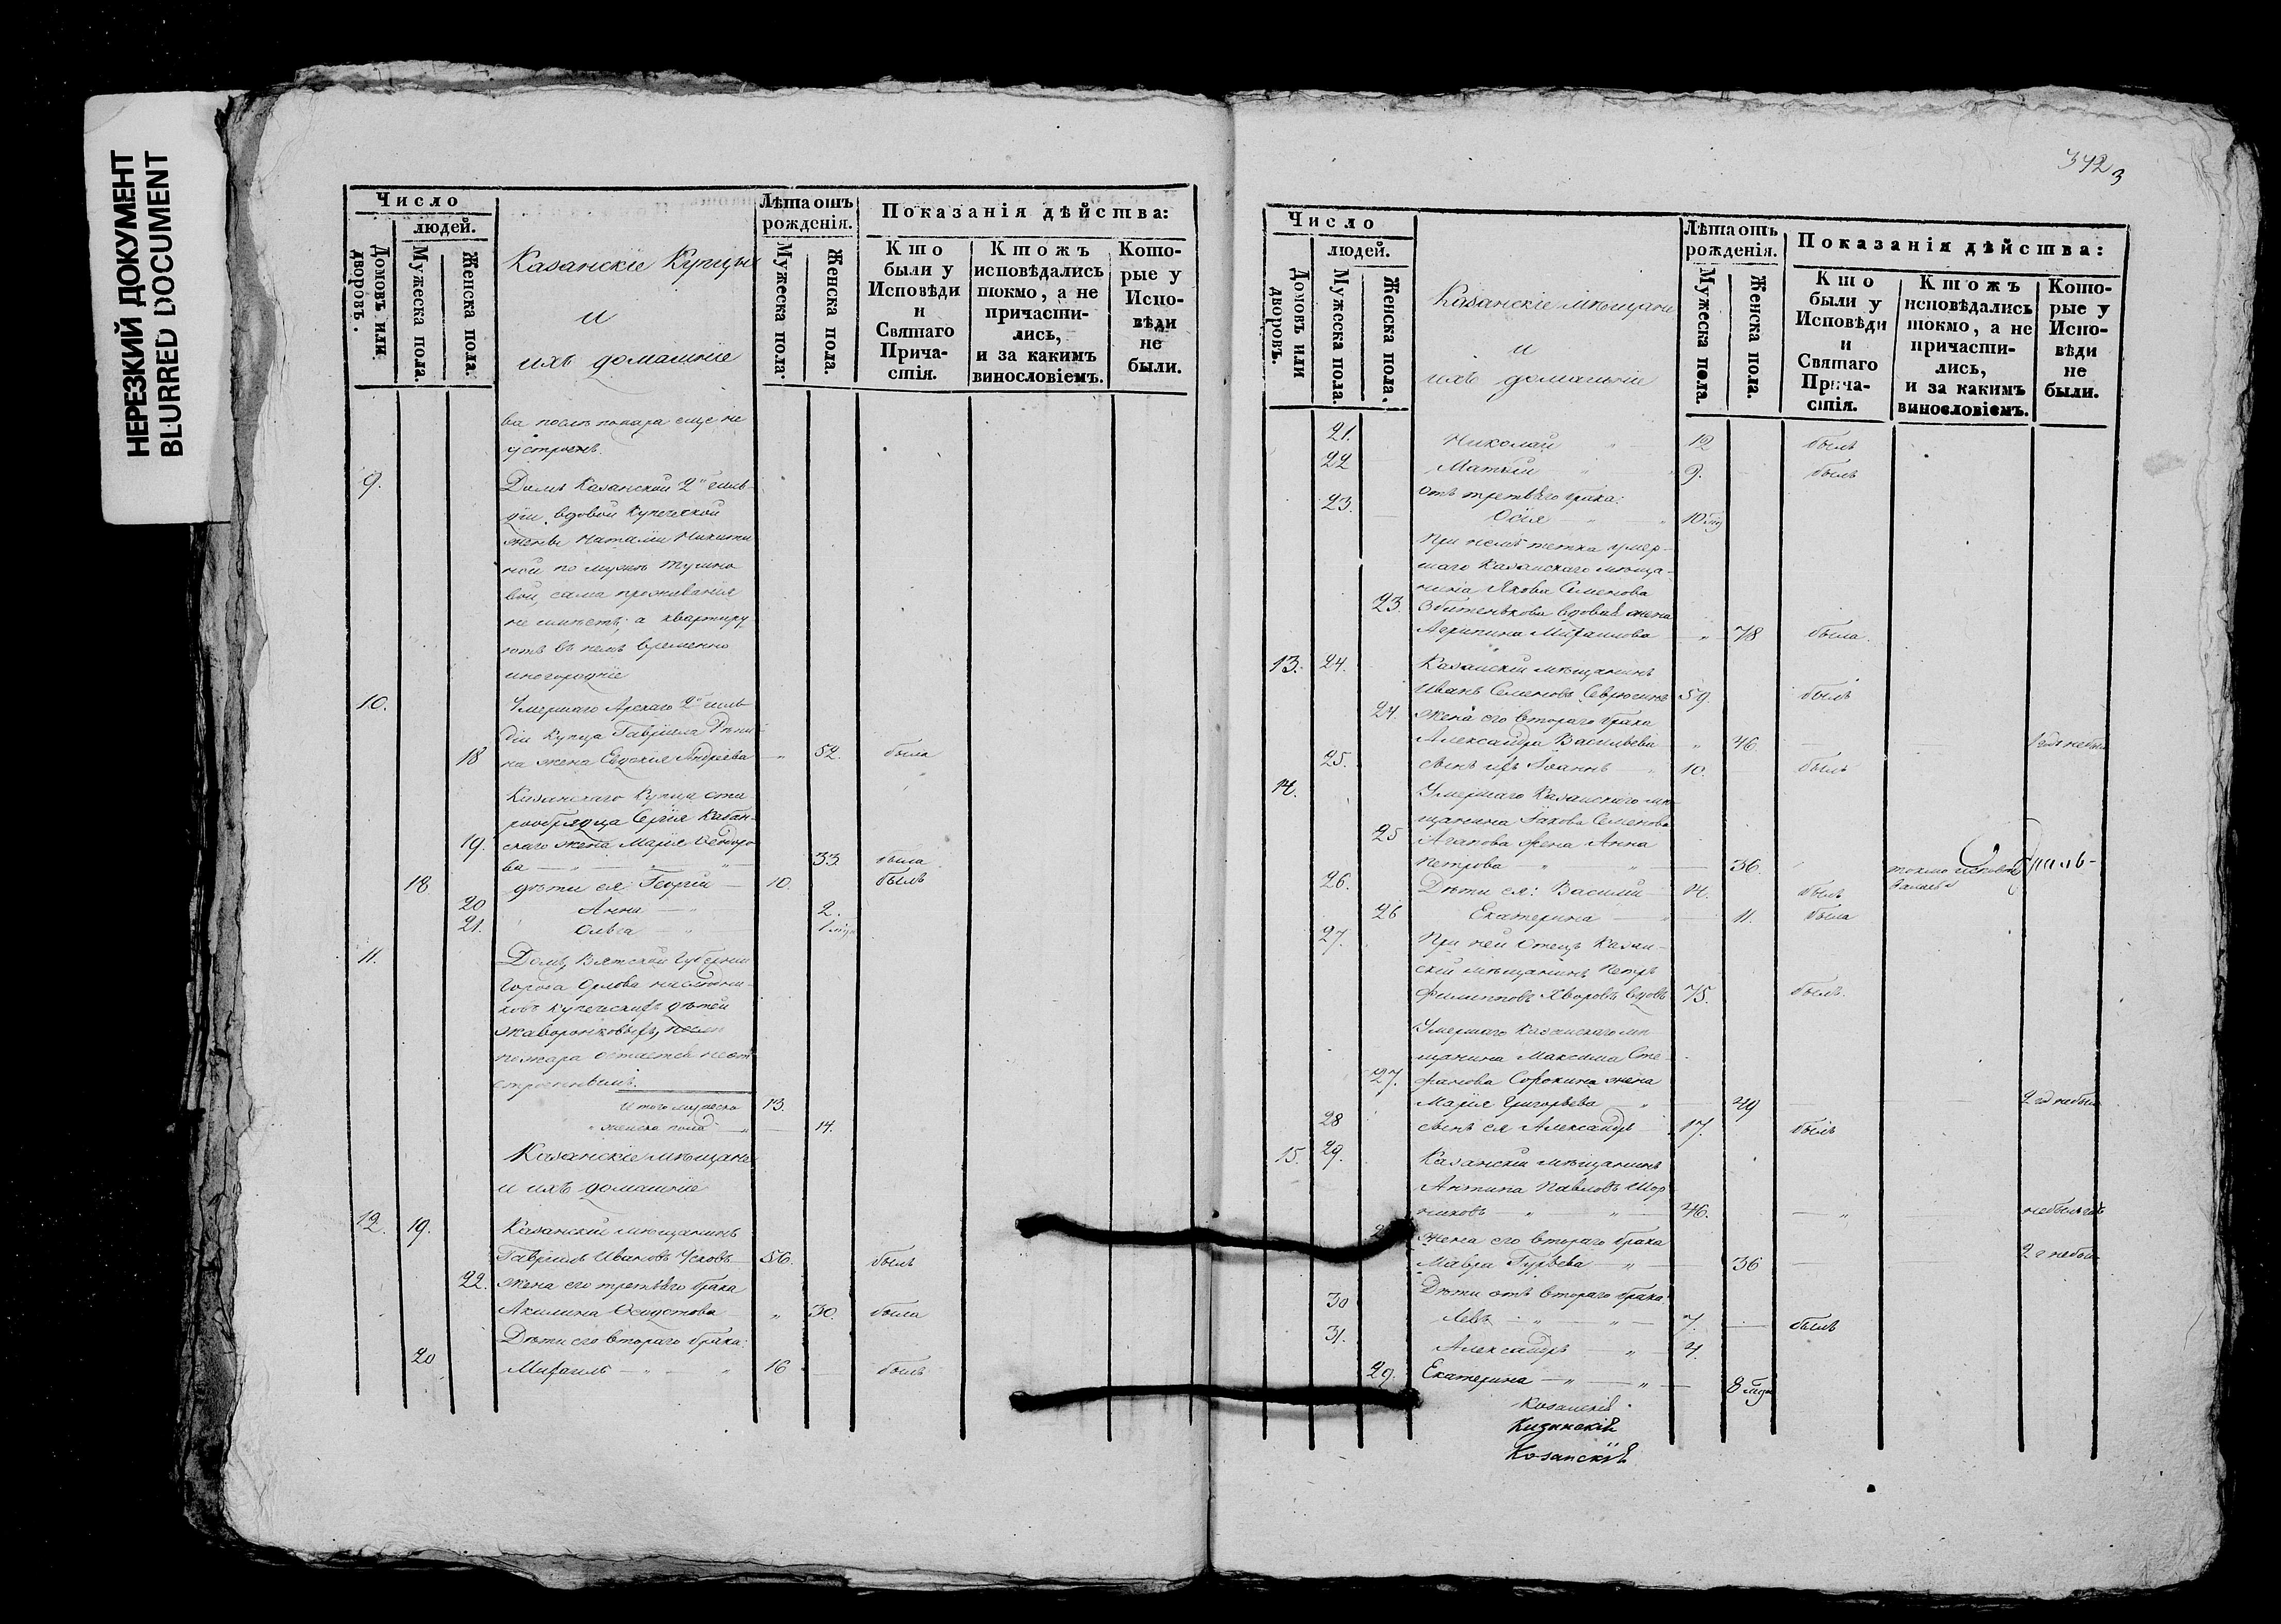 НЕРЕЗКИЙ ДОКУМЕНТ
BLURRED DOCUMENT
Число
людей.
Домовъ или дворовъ.
Мужеска пола.
Женска пола.
Казанскіе Купцы
и
ихъ домашніе
Лѣта отъ рожденія.
Мужеска пола.
Женска пола.
Показанія дѣйства:
Кто были у Исповѣди и Святаго Причастія.
Ктожъ исповѣдались токмо, а не причастились, и за какимъ винословіемъ.
Которые у Исповѣди не были.
ва послѣ пожара еще не
устроенъ.
9. Домъ Казанской 2й гиль-
діи вдовой купеческой
жены Наталіи Никити
ной по мужѣ
вой, сама проживанія
не имѣетъ, а квартиру
ютъ въ немъ временно
иногородніе
10. Умершаго Арскаго 2й гиль
діи Купца Гавріила
18 на жена Евдокія Андреева 52. была
Казанскаго Купца ста
рообрядца Сергія Кабан-
19. скаго жена Марія Ѳедоро
ва 33. была
18. дѣти ея: Георгій 10. былъ
20 Анна 2.
21. Ольга
11. Домъ Вятской Губерніи
города Орлова наслѣдни-
ковъ купеческихъ дѣтей
Жаворонковыхъ, послѣ
пожара остается неот
строеннымъ.
Итого мужеска 13.
женска пола 14.
Казанскіе мѣщане
и ихъ домашніе
12. 19. Казанскій мѣщанинъ
Гавріилъ Ивановъ Усковъ 56. былъ
22. жена его третьяго брака
Акилина Ѳедотова 30. была
Дѣти его втораго брака:
20 Михаилъ 16 былъ
342
3
Число
людей.
Домовъ или дворовъ.
Мужеска пола.
Женска пола.
Казанскіе мѣщане
и
ихъ домашніе
Лѣта отъ рожденія.
Мужеска пола.
Женска пола.
Показанія дѣйства:
Кто были у Исповѣди и Святаго Причастія.
Ктожъ исповѣдались токмо, а не причастились, и за какимъ винословіемъ.
Которые у Исповѣди не были.
21. Николай 12 былъ
22 Матвѣй 9. былъ
отъ третьяго брака:
23. Осія
При немъ тетка умер-
шаго Казанскаго мѣща-
нина Якова Семенова
23. Збитенькова вдовая жена
Агрипина Михаилова 78 была.
13. 24. Казанскій мѣщанинъ
Иванъ Семеновъ Севрюгинъ 59. былъ
24. жена его втораго брака
Александра Васильева 46
25. сынъ ихъ Іоаннъ 10. былъ
14. Умершаго Казанскаго мѣ
щанина Іакова Семенова
25 Агапова жена Анна
Петрова 36. токмо исповѣ
26. Дѣти ея: Василій 14. былъ
26 Екатерина 11. была
27. При ней Отецъ Казан-
скій мѣщанинъ Петръ
Филипповъ Хворовъ вдовъ 75. былъ.
Умершаго Казанскаго мѣ
щанина Максима Сте
27. фанова Сорокина жена
Марія Григорьева 49
28 сынъ ея Александръ 17. былъ
15. 29. Казанскій мѣщанинъ
Антипа Павловъ Шор
никовъ 46.
жена его втораго брака
Мавра Гурьева 36
Дѣти отъ втораго брака:
30 Левъ 7. былъ
31. Александръ 4.
29. Екатерина
Казанскій
Казанскій
Козанскій